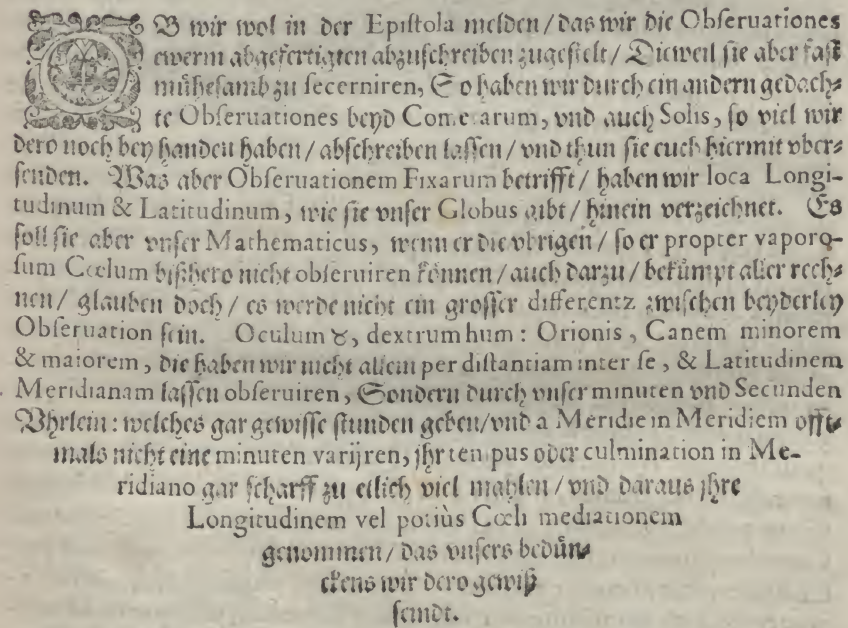 OB wir wol in der Epistola melden / das wir die Obseruationes
ewerm abgefertigten abzuschreiben zugestelt / Dieweil sie aber fast
mühesamb zu secerniren, So haben wir durch ein andern gedach⸗
te Obseruationes beyd Cometarum, vnd auch Solis, so viel wir
dero noch bey handen haben / abschreiben lassen / vnd thun sie euch hiermit vber⸗
senden. Was aber Obseruationem Fixarum betrifft / haben wir loca Longi-
tudinum & Latitudinum, wie sie vnser Globus gibt / hinein verzeichnet. Es
soll sie aber vnser Mathematicus, wenn er die vbrigen / so er propter vaporo-
sum Cœlum bißhero nicht obseruiren können / auch darzu / bekümpt aller rech⸗
nen / glauben doch / es werde nicht ein grosser differentz zwischen beyderley
Obseruation sein. Oculum ♉, dextrum hum: Orionis, Canem minorem
& maiorem, die haben wir nicht allein per distantiam inter se, & Latitudinem
Meridianam lassen obseruiren, Sondern durch vnser minuten vnd Secunden
Vhrlein: welches gar gewisse stunden geben / vnd a Meridie in Meridiem offt⸗
mals nicht eine minuten varijren, jhr tempus oder culmination in Me-
ridiano gar scharff zu etlich viel mahlen / vnd daraus jhre
Longitudinem vel potiùs Cœli mediationem
genommen / das vnsers bedün⸗
ckens wir dero gewiß
seindt.